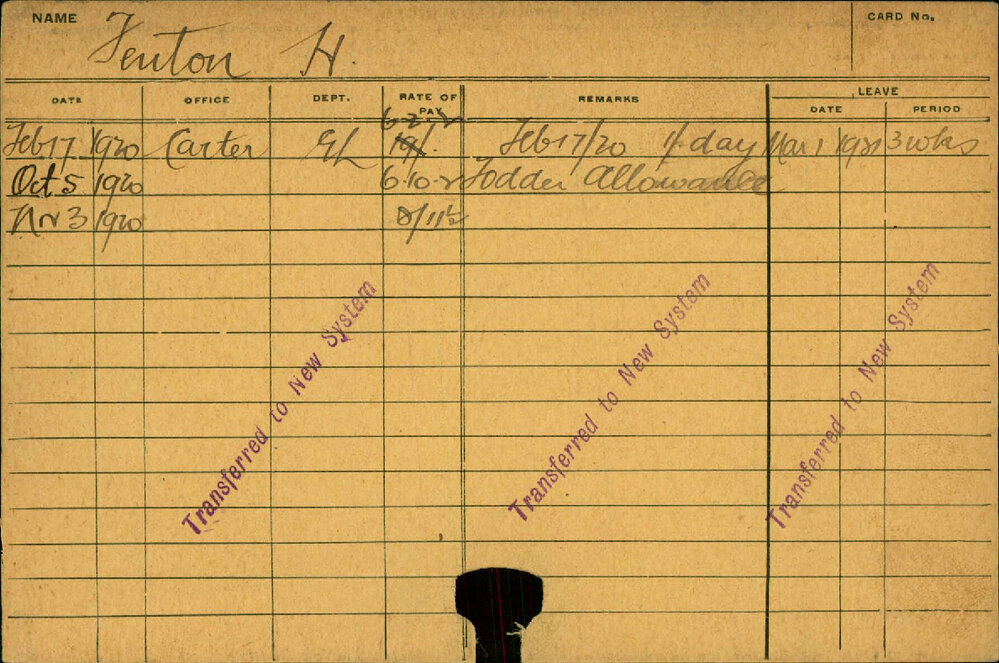 NAME Fenton H. CARD No.
DATE OFFICE DEPT. RATE OF PAY REMARKS LEAVE
DATE PERIOD
6-2-2
Feb 17 1920 Carter EL 19/. Feb 17/20 1/- day Mar 1 1921 3 wks
Oct 5 1920 6-10-2 Fodder Allowance
Nv 3 1920 8/11½
Transferred to New System
Transferred to New System
Transferred to New System